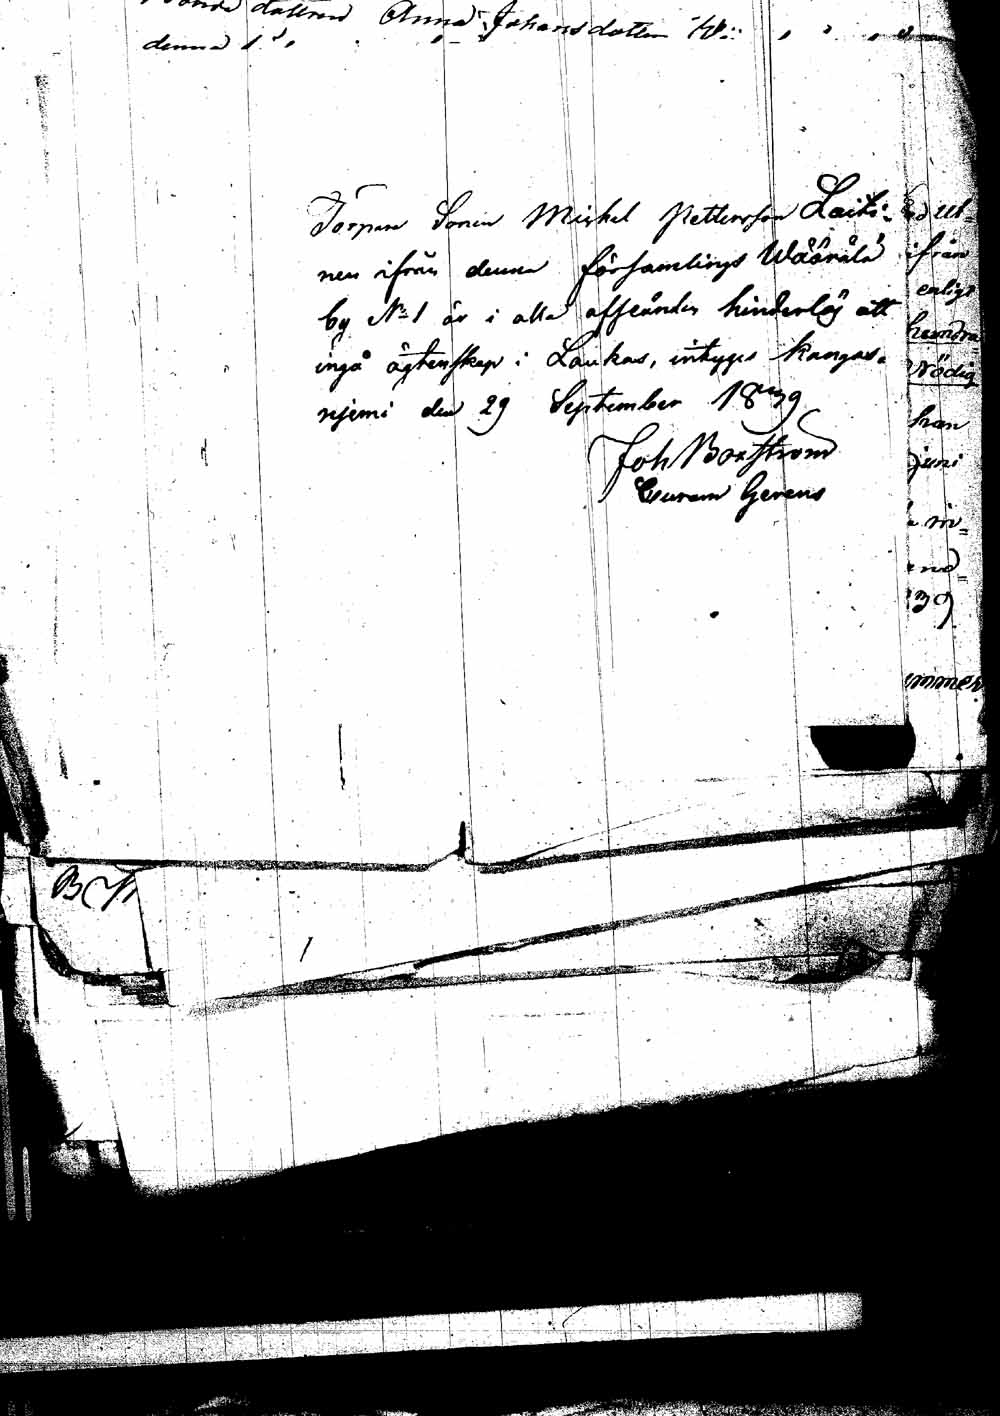 Bonde dottren Anna Johansdotter
denna
Torpare Sonen Mickel Pettersson Laiti-
nen ifrån denna församlings Wääräla
by No 1 är i alla afseenden hinderlös att
ingå ägtenskap i Laukas, intygas Kangas-
niemi den 29 September 1839
Joh Boxström
Curam Gerens
ifrån
enligt
hundra
nödig
han
juni
39
BN